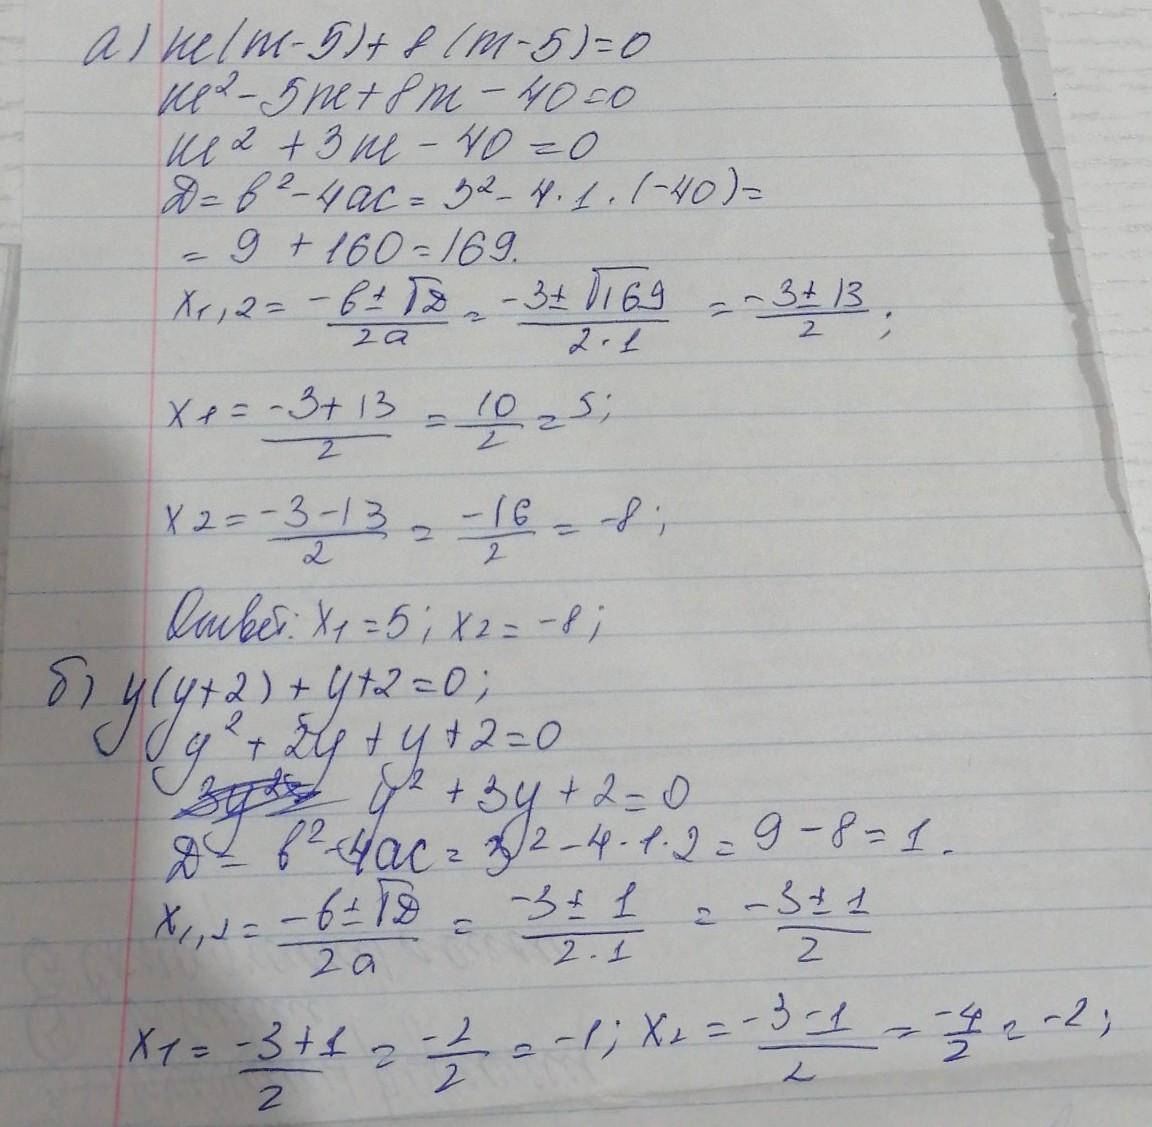 а) m(m-5)+8(m-5)=0
m²-5m+8m-40=0
m²+3m-40=0
D=b²-4ac=3²-4·1·(-40)=
=9+160=169.
x1,2= (-b±√D)/(2a) = (-3±√169)/(2·1) = (-3±13)/2;
x1= (-3+13)/2 = 10/2 = 5;
x2= (-3-13)/2 = -16/2 = -8;
Ответ: x1=5; x2=-8;
б) y(y+2)+y+2=0;
y²+2y+y+2=0
y²+3y+2=0
D=b²-4ac=3²-4·1·2=9-8=1.
x1,2= (-b±√D)/(2a) = (-3±1)/(2·1) = (-3±1)/2
x1= (-3+1)/2 = -2/2 = -1; x2= (-3-1)/2 = -4/2 = -2;